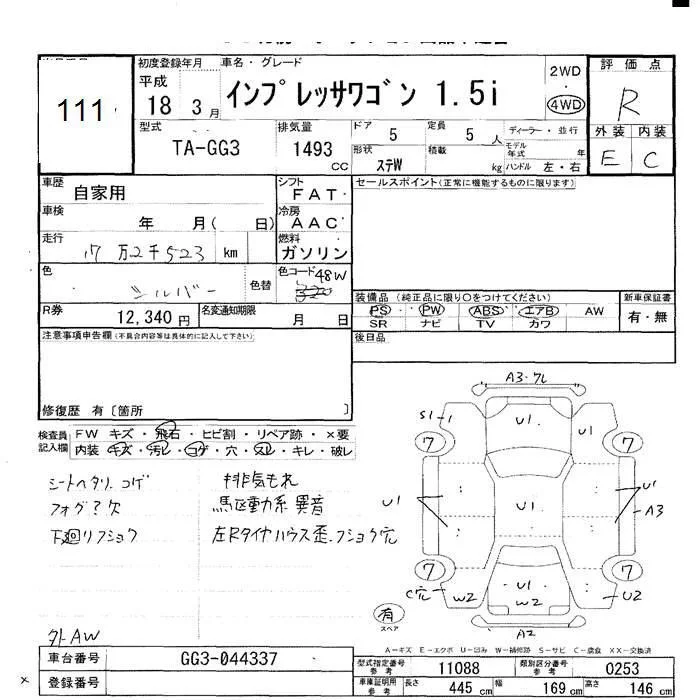 111
初度登録年月 車名・グレード
平成 18 3 月 インプレッサワゴン 1.5i
2WD ・ 4WD
評価点
R
外装 内装
E C
型式 TA-GG3
排気量 1493 CC
ドア 5 定員 5 人
形状 ステW 積載 kg
ディーラー・並行
モデル年式 年
ハンドル 左・右
車歴 自家用
シフト FAT
車検 年 月( 日)
冷房 AAC
走行 17万2千523 km
燃料 ガソリン
色 シルバー 色替
色コード 48W
R券 12,340 円 名変通知期限 月 日
セールスポイント(正常に機能するものに限ります)
装備品 (純正品に限り○をつけてください)
PS PW ABS エアB AW
SR ナビ TV カワ
新車保証書
有・無
後日品
注意事項申告欄(不具合内容等は具体的に記入して下さい)
修復歴 有〔箇所 〕
検査員記入欄
FW キズ・飛石・ヒビ割・リペア跡・×要
内装 キズ・汚レ・コゲ・穴・スレ・キレ・破レ
シートヘタリ コゲ
フォグ?欠
下廻リフショク
排気もれ
駆動系 異音
左Rタイヤハウス歪、フショク穴
外AW
A3・フレ
S1-1 U1 U1
7 7
U1 U1 U1
A3
7 7
C穴 W2 U1 W2 U2
A2
有
スペア
A-キズ E-エクボ U-凹み W-補修跡 S-サビ C-腐食 XX-交換済
車台番号 GG3-044337
登録番号
型式指定番号 参考 11088 類別区分番号 参考 0253
車庫証明用 参考 長さ 445 cm 幅 169 cm 高さ 146 cm
×